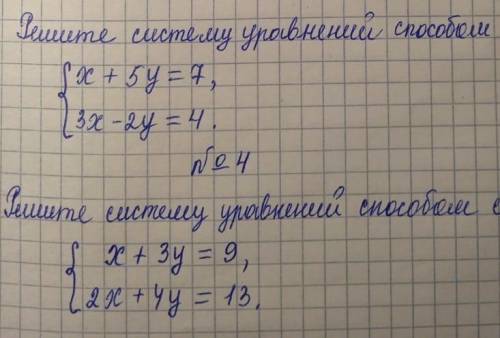 Решите систему уравнений способом
x + 5y = 7,
3x - 2y = 4.
№ 4
Решите систему уравнений способом с
x + 3y = 9,
2x + 4y = 13.